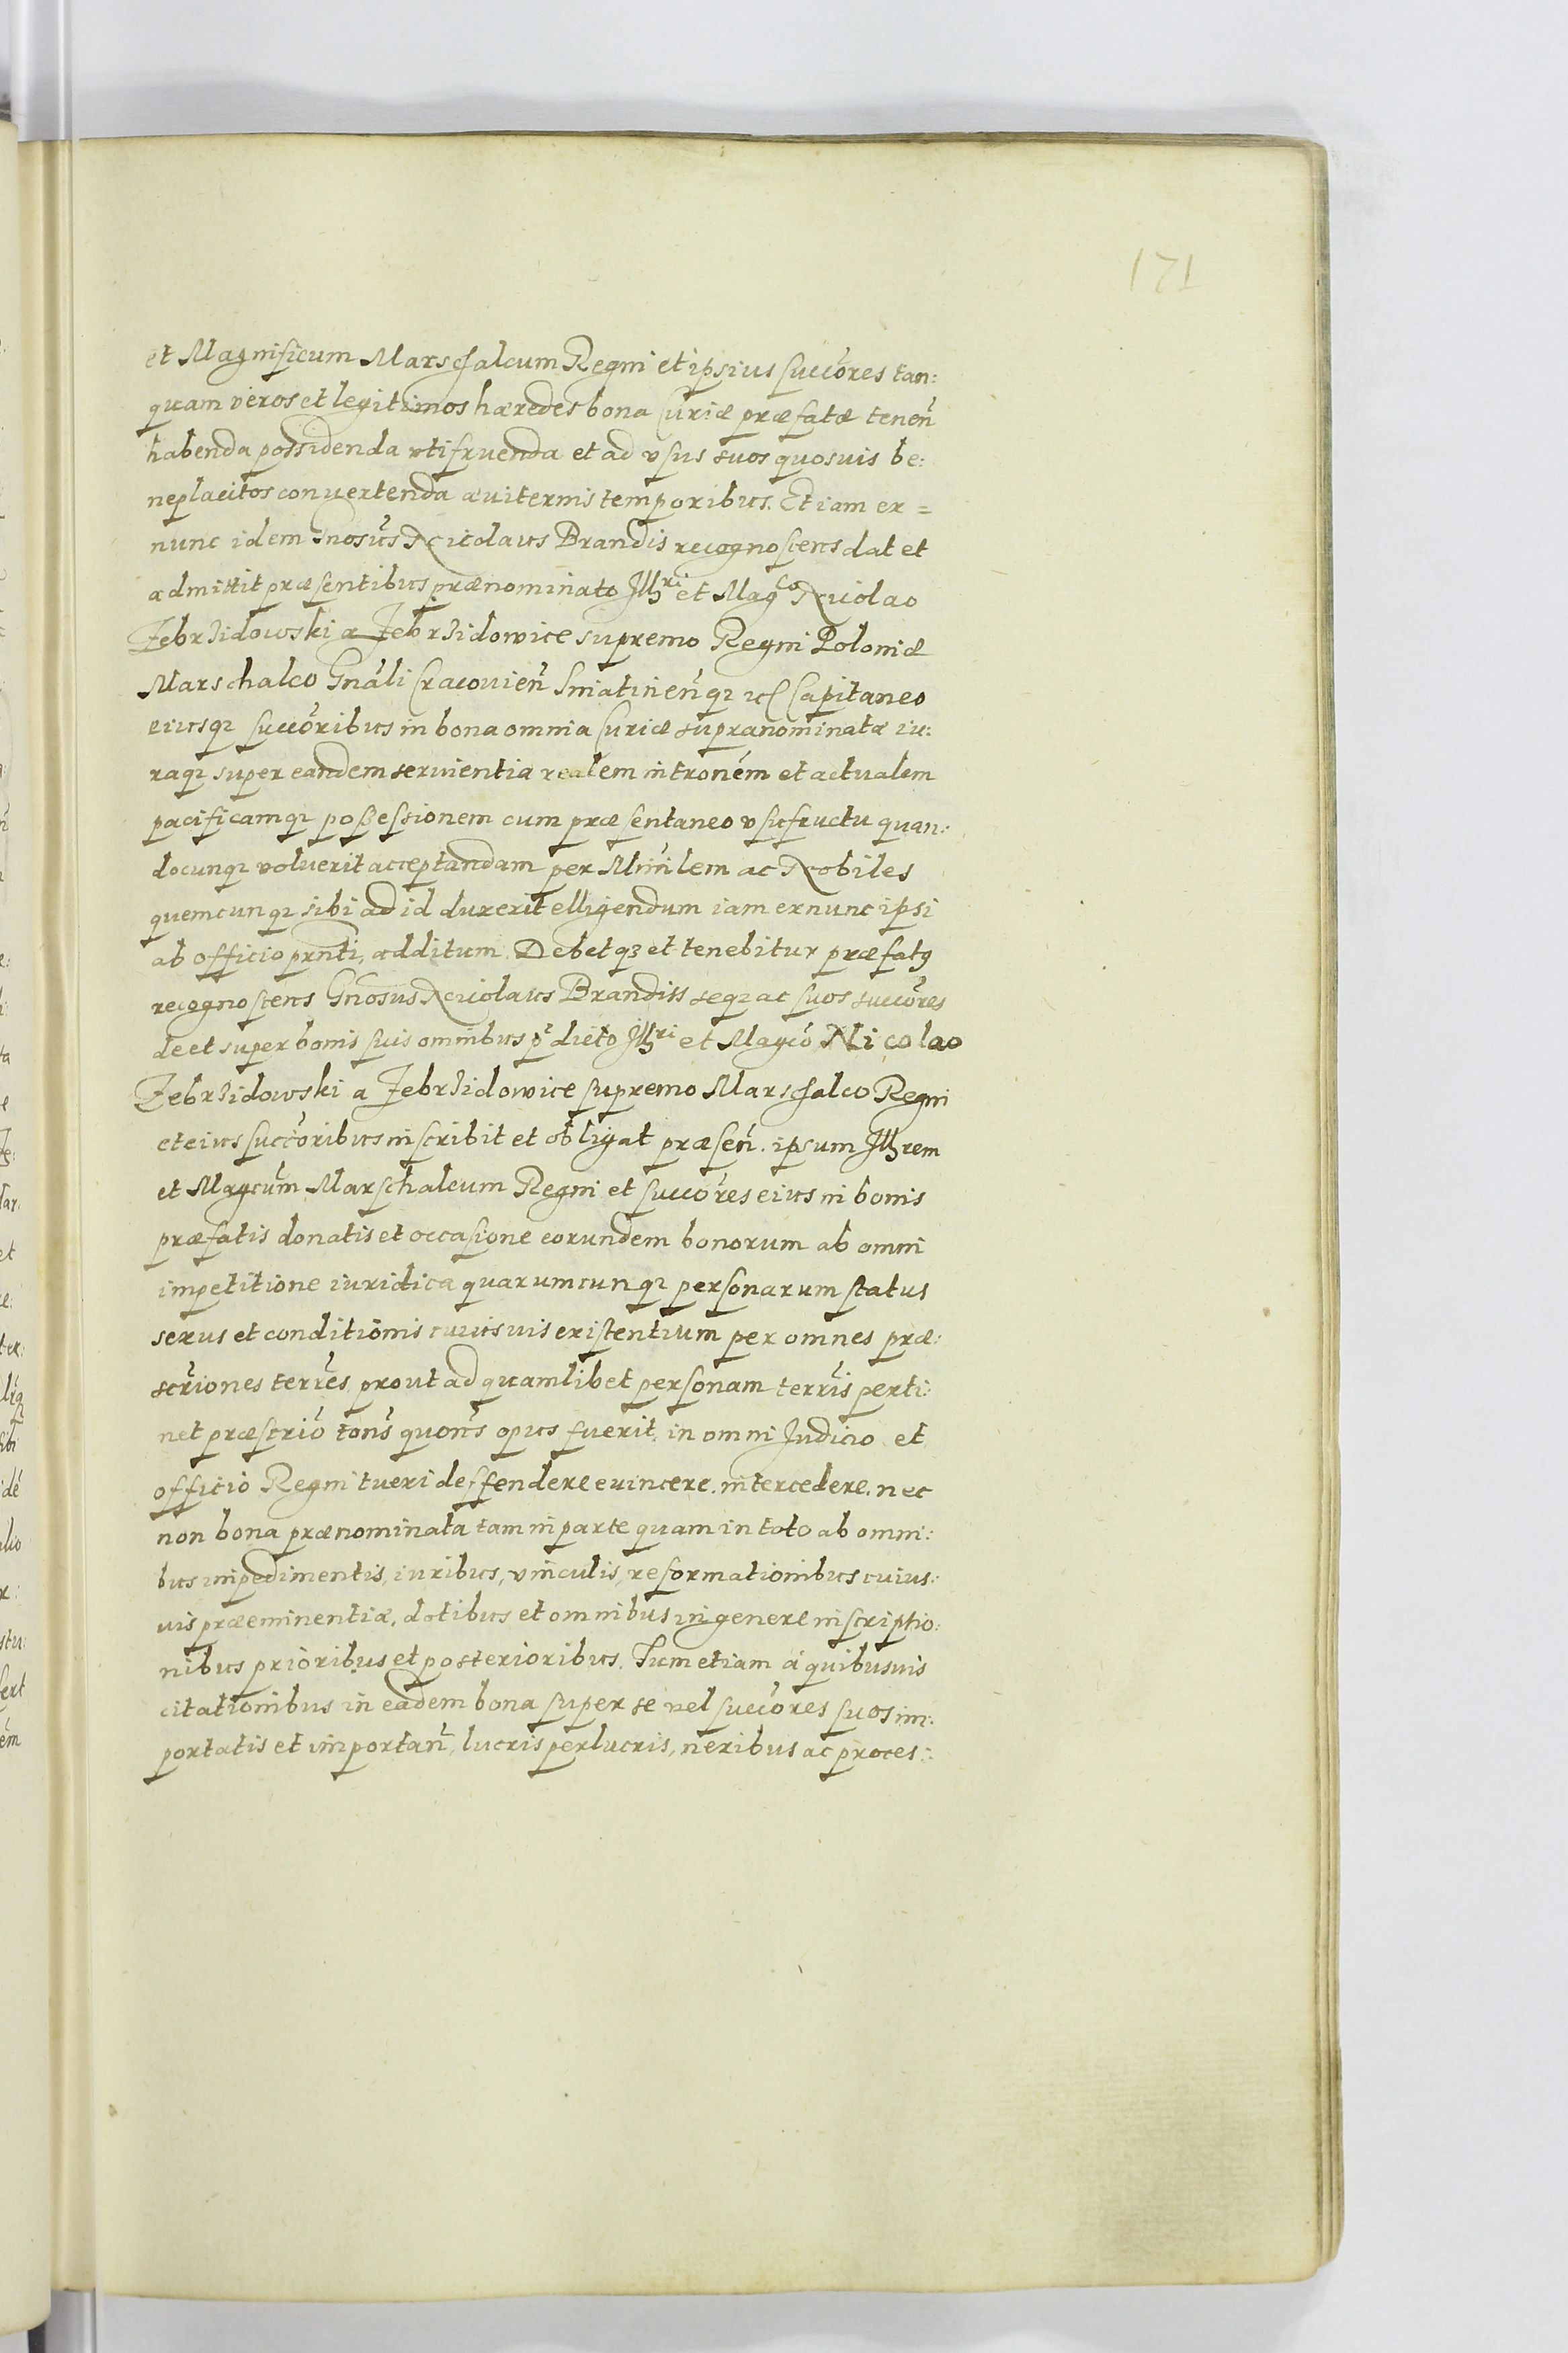 171
et Magnificum Marschalcum Regni et ipsius succ̃ores tan:
quam veros et legitimos hæredes bona Curiæ præfatæ tenen̄
habenda possidenda utifruenda et ad usus suos quosuis be:
neplacitos conuertenda æuiternis temporibus. Et iam ex=
nunc idem Gnosus Nicolaus Brandis recognoscens dat et
admittit præsentibus prænominato Illri et Magco Nicolao
Zebrzidowski a Zebrzidowice supremo Regni Poloniæ
Marschalco Gnáli Cracouien̄ Sniatinien̄q3 etc Capitaneo
eiusq3 succ̃oribus in bona omnia Curiæ supranominatæ iu:
raq3 super eandem seruientia realem intronem et actualem
pacificamq3 possessionem cum præsentaneo usufructu quan:
docunq3 voluerit acceptandam per Mīnĩlem ac Nobiles
quemcunq3 sibi ad id duxerit elligendum iam exnunc ipsi
ab officio pr̃nti, additum. Debetq3 et tenebitur præfat9
recognoscens Gñosus Nicolaus Brandiss seq3 ac suos succ̃ores
de et super bonis suis omnibus p̃dicto Illri et Magco Nicolao
Zebrzidowski a Zebrzidowice supremo Marschalco Regni
et eius succ̃oribus inscribit et obligat præsen̄. ipsum Illrem
et Magcum Marschalcum Regni et succ̃ores eius in bonis
præfatis donatis et occasione eorundem bonorum ab omni
impetitione iuridica quarumcunq3 personarum status
sexus et conditionis cuiusuis existentium per omnes præ:
scr̃iones terr̃es prout ad quamlibet personam terr̃is perti:
net præscriõ tons̄ quons̄ opus fuerit, in omni Judicio et
officio Regni tueri deffendere euincere. intercedere. nec
non bona prænominata tam in parte quam in toto ab omni:
bus impedimentis, iuribus, vinculis, reformationibus cuius:
uis præeminentiæ, dotibus et omnibus in genere inscriptio:
nibus prioribus et posterioribus. Tum etiam á quibusuis
citationibus in eadem bona super se vel succ̃ores suos im:
portatis et importan̄, lucris perlucris, nexibus ac proces: